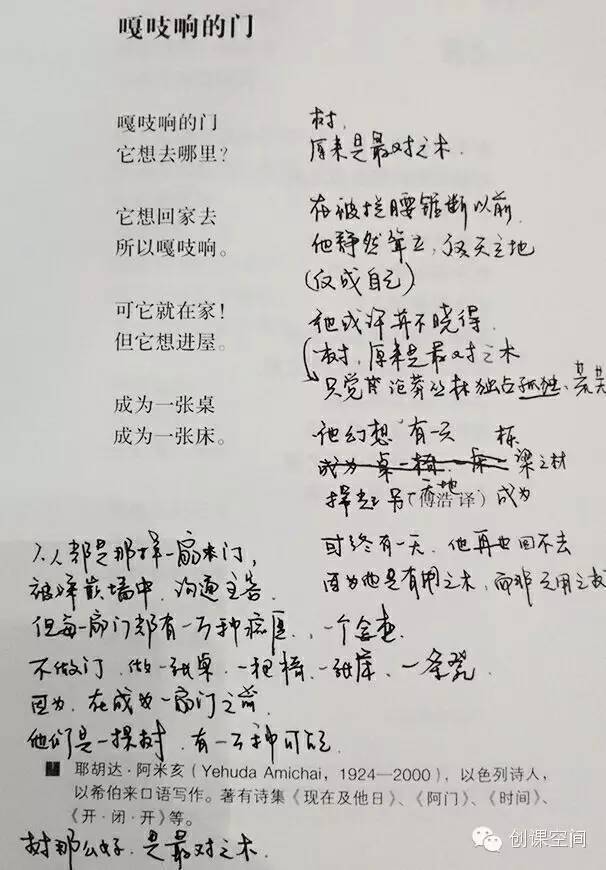 嘎吱响的门
嘎吱响的门
它想去哪里？
它想回家去
所以嘎吱响。
可它就在家！
但它想进屋。
成为一张桌
成为一张床。
（傅浩 译）
树，
原来是最对之木．
在被拦腰锯断以前．
他静然耸立，
(仅成自己)
他或许并不晓得．
树，原来是最对之木
只觉 莽丛林独占孤独、
他幻想有一天 栋
成为桌 椅 床 梁之材
天地 成为
可终有一天，他再也回不去
因为他是有用之木，而非无用之
人都是那样一扇木门，
被 墙中，沟通主客．
但每一扇门都有一万种 ，一个
不做门，做一张桌、一把椅、一张床、一条凳
因为，在成为一扇门之前
他们是一棵树，有一万种可能．
耶胡达·阿米亥（Yehuda Amichai，1924—2000），以色列诗人，
以希伯来口语写作。著有诗集《现在及他日》、《阿门》、《时间》、
《开·闭·开》等。
树那么好，是最对之木．
创课空间